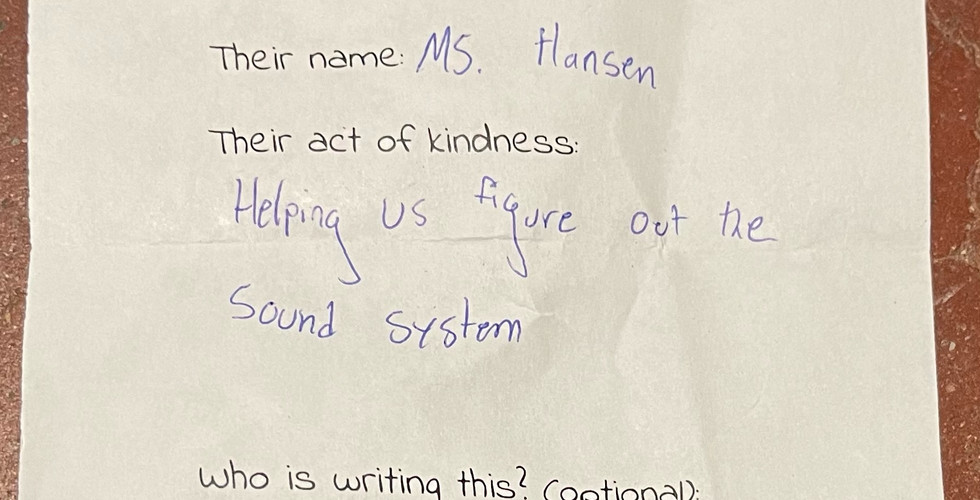 Their name: MS. Hansen
Their act of kindness:
Helping us figure out the
Sound system
who is writing this? (optional):